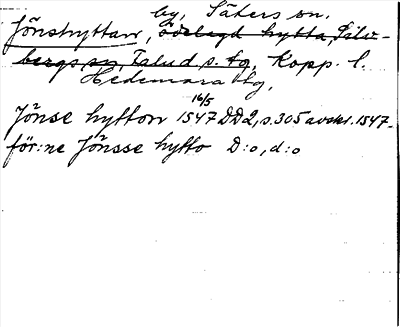 by, Säters sn.
Jönshyttan, ödelagd hytta, Silv-
bergs sn, Falud s. tg, Kopp. l.
Hedemora tg,
16/5
Jönse hytton 1547 DD2, s. 305 avskr. 1547.
för:ne Jönsse hytto D:o, d:o